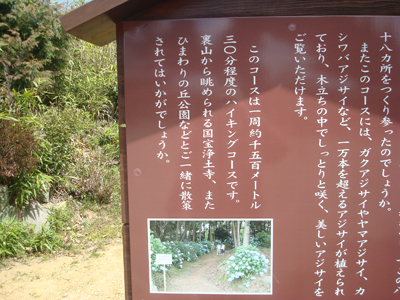 十八カ所をつくり参ったのでしょうか。
またこのコースには、ガクアジサイやヤマアジサイ、カ
シワバアジサイなど、一万本を超えるアジサイが植えられ
ており、木立ちの中でしっとりと咲く、美しいアジサイを
ご覧いただけます。
このコースは一周約千五百メートル
三〇分程度のハイキングコースです。
裏山から眺められる国宝浄土寺、また
ひまわりの丘公園などとご一緒に散策
されてはいかがでしょうか。